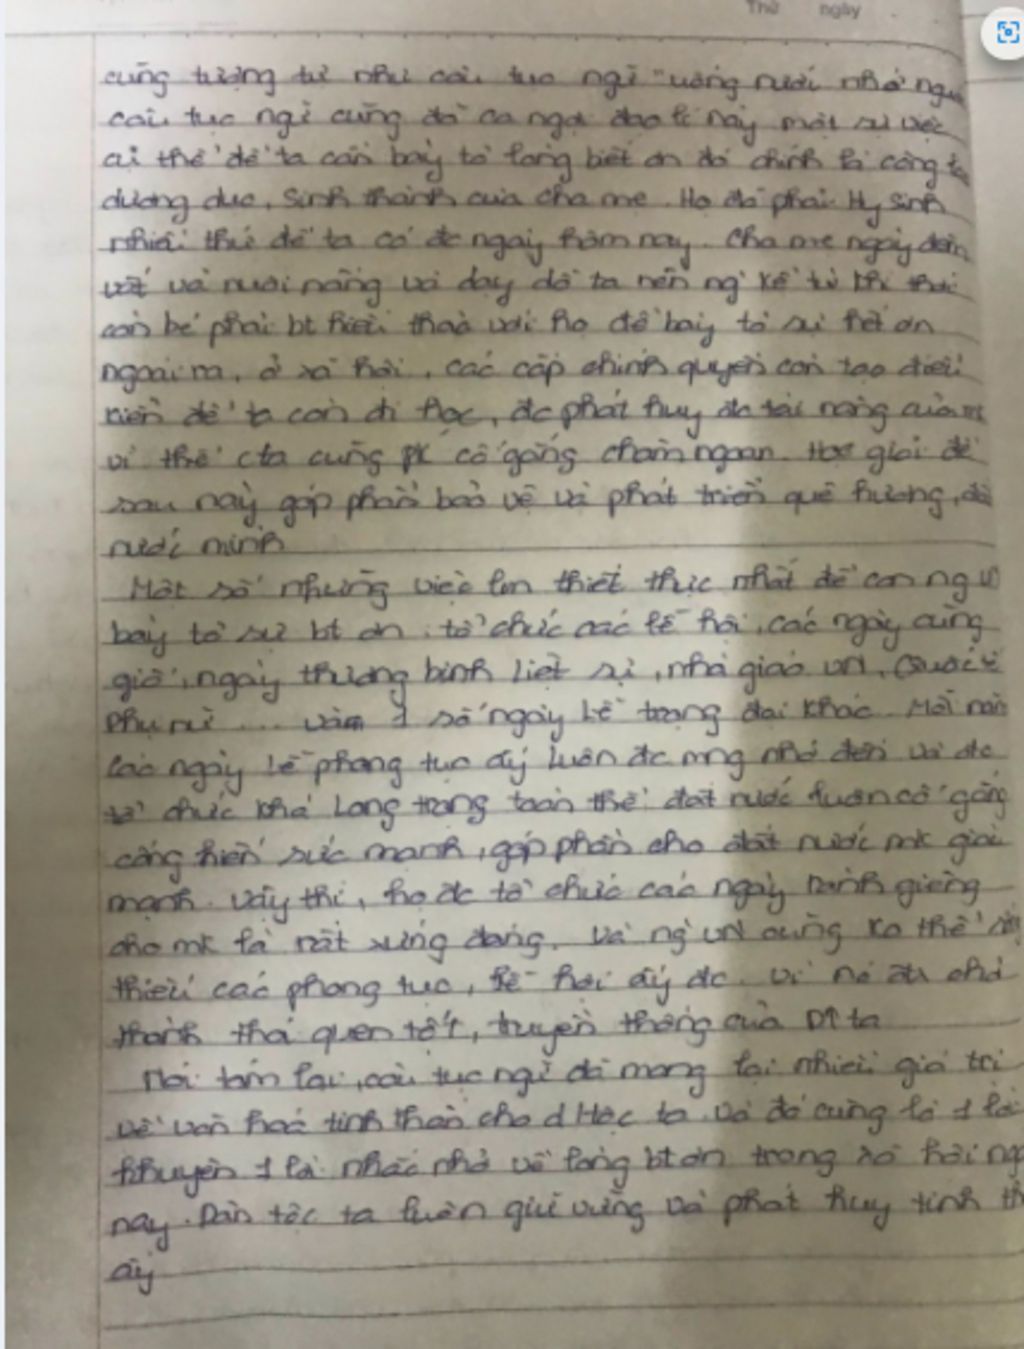 Thứ ngày
cũng tương tự như câu tục ngữ "uống nước nhớ
câu tục ngữ cũng đã ca ngợi đạo lí này một sự việc
cụ thể để ta cần bày tỏ lòng biết ơn đó chính là công
dưỡng dục, sinh thành của cha mẹ. Họ đã phải Hy sinh
nhiều thứ để ta có đc ngày hôm nay. Cha mẹ ngày đêm
vất vả nuôi nấng và dạy dỗ ta nên ng' kể từ khi
còn bé phải bt hiếu thảo với họ để bày tỏ sự biết ơn
ngoài ra, ở xã hội, các cấp chính quyền còn tạo điều
kiện để ta còn đi học, đc phát huy đc tài năng của
vì thế cta cũng cố gắng chăm ngoan. Học giỏi để
sau này góp phần bảo vệ và phát triển quê hương,
nước mình
Một số những việc thiết thực nhất để con
bày tỏ sự bt ơn: tổ chức các lễ hội, các ngày cúng
giỗ, ngày thương binh liệt sĩ, nhà giáo VN, Quốc tế
Phụ nữ... 1 số ngày Lễ trọng đại khác. Mỗi năm
các ngày Lễ phong tục ấy luôn đc mng nhớ đến và đc
tổ chức khá Long trọng toàn thể đất nước luôn cố gắng
cống hiến sức mạnh, góp phần cho đất nước mk giàu
mạnh. Vậy thì, họ đc tổ chức các ngày giêng
cho mk là rất xứng đáng. Và ng' VN cũng ko thể
thiếu các phong tục, lễ hội ấy đc. Vì nó đã
thành thói quen tốt, truyền thống của DT ta
Nói tóm lại, câu tục ngữ đã mang lại nhiều giá trị
về văn hoá tinh thần cho ta. Và đó cũng là 1 lời
khuyên 1 lời nhắc nhở về lòng bt ơn trong xã hội
nay. Dân tộc ta luôn giữ vững và phát huy tinh
ấy